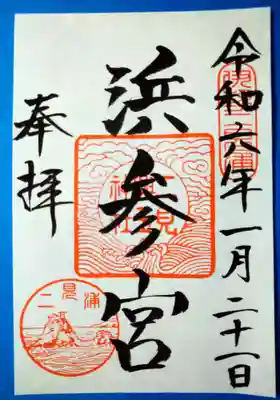 令和六年一月二十一日
浜参宮
奉拝
二見
神社
二見浦